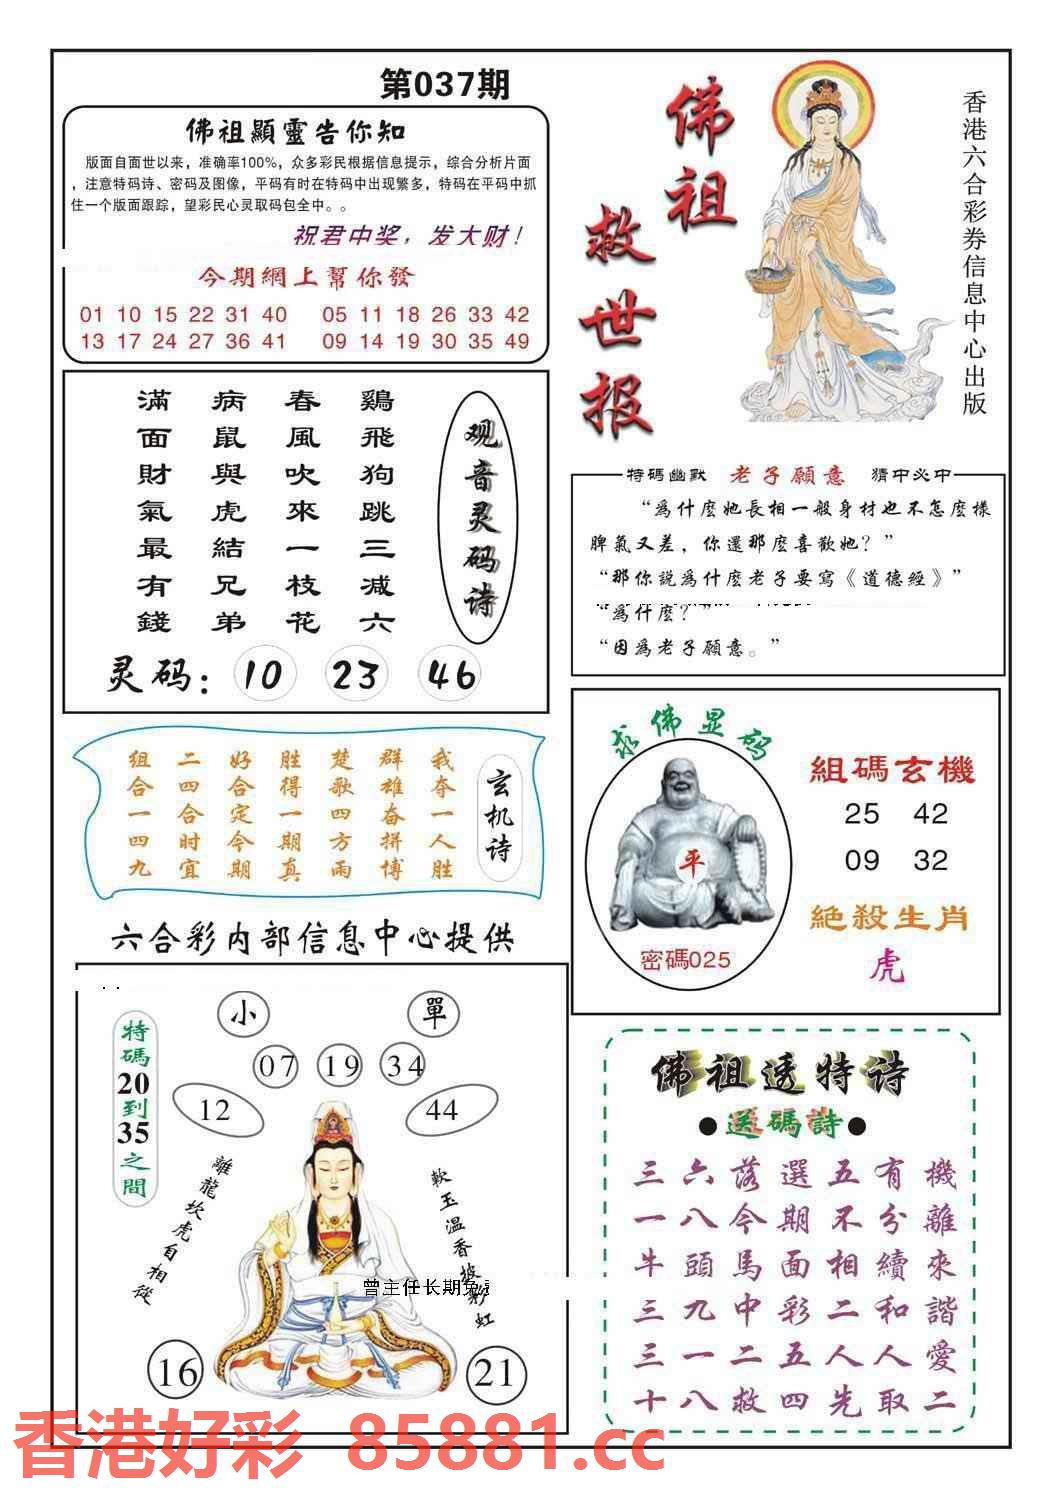 第037期
佛祖顯靈告你知
版面自面世以来，准确率100%，众多彩民根据信息提示，综合分析片面
，注意特码诗、密码及图像，平码有时在特码中出现繁多，特码在平码中抓
住一个版面跟踪，望彩民心灵取码包全中。。
祝君中奖，发大财！
今期網上幫你發
01 10 15 22 31 40 05 11 18 26 33 42
13 17 24 27 36 41 09 14 19 30 35 49
佛祖
救世报
香港六合彩券信息中心出版
观音灵码诗
鷄飛狗跳三减六
春風吹來一枝花
病鼠與虎結兄弟
滿面財氣最有錢
灵码：10 23 46
特碼幽默 老子願意 猜中必中
“爲什麼她長相一般身材也不怎麼樣
脾氣又差，你還那麼喜歡她？”
“那你説爲什麼老子要寫《道德經》”
“爲什麼？”
“因爲老子願意。”
玄机诗
我夺一人胜
群雄奋拼博
楚歌四方雨
胜得一期真
好合定今期
二四合时宜
组合一四九
求佛显码
平
密碼025
組碼玄機
25 42
09 32
絕殺生肖
虎
六合彩内部信息中心提供
小 單
07 19 34
12 44
特碼20到35之間
離龍坎虎自相從
軟玉温香披彩虹
曾主任长期免
16 21
佛祖透特诗
●送碼詩●
三六落選五有機
一八今期不分離
牛頭馬面相續來
三九中彩二和諧
三一二五人人愛
十八救四先取二
香港好彩 85881.cc